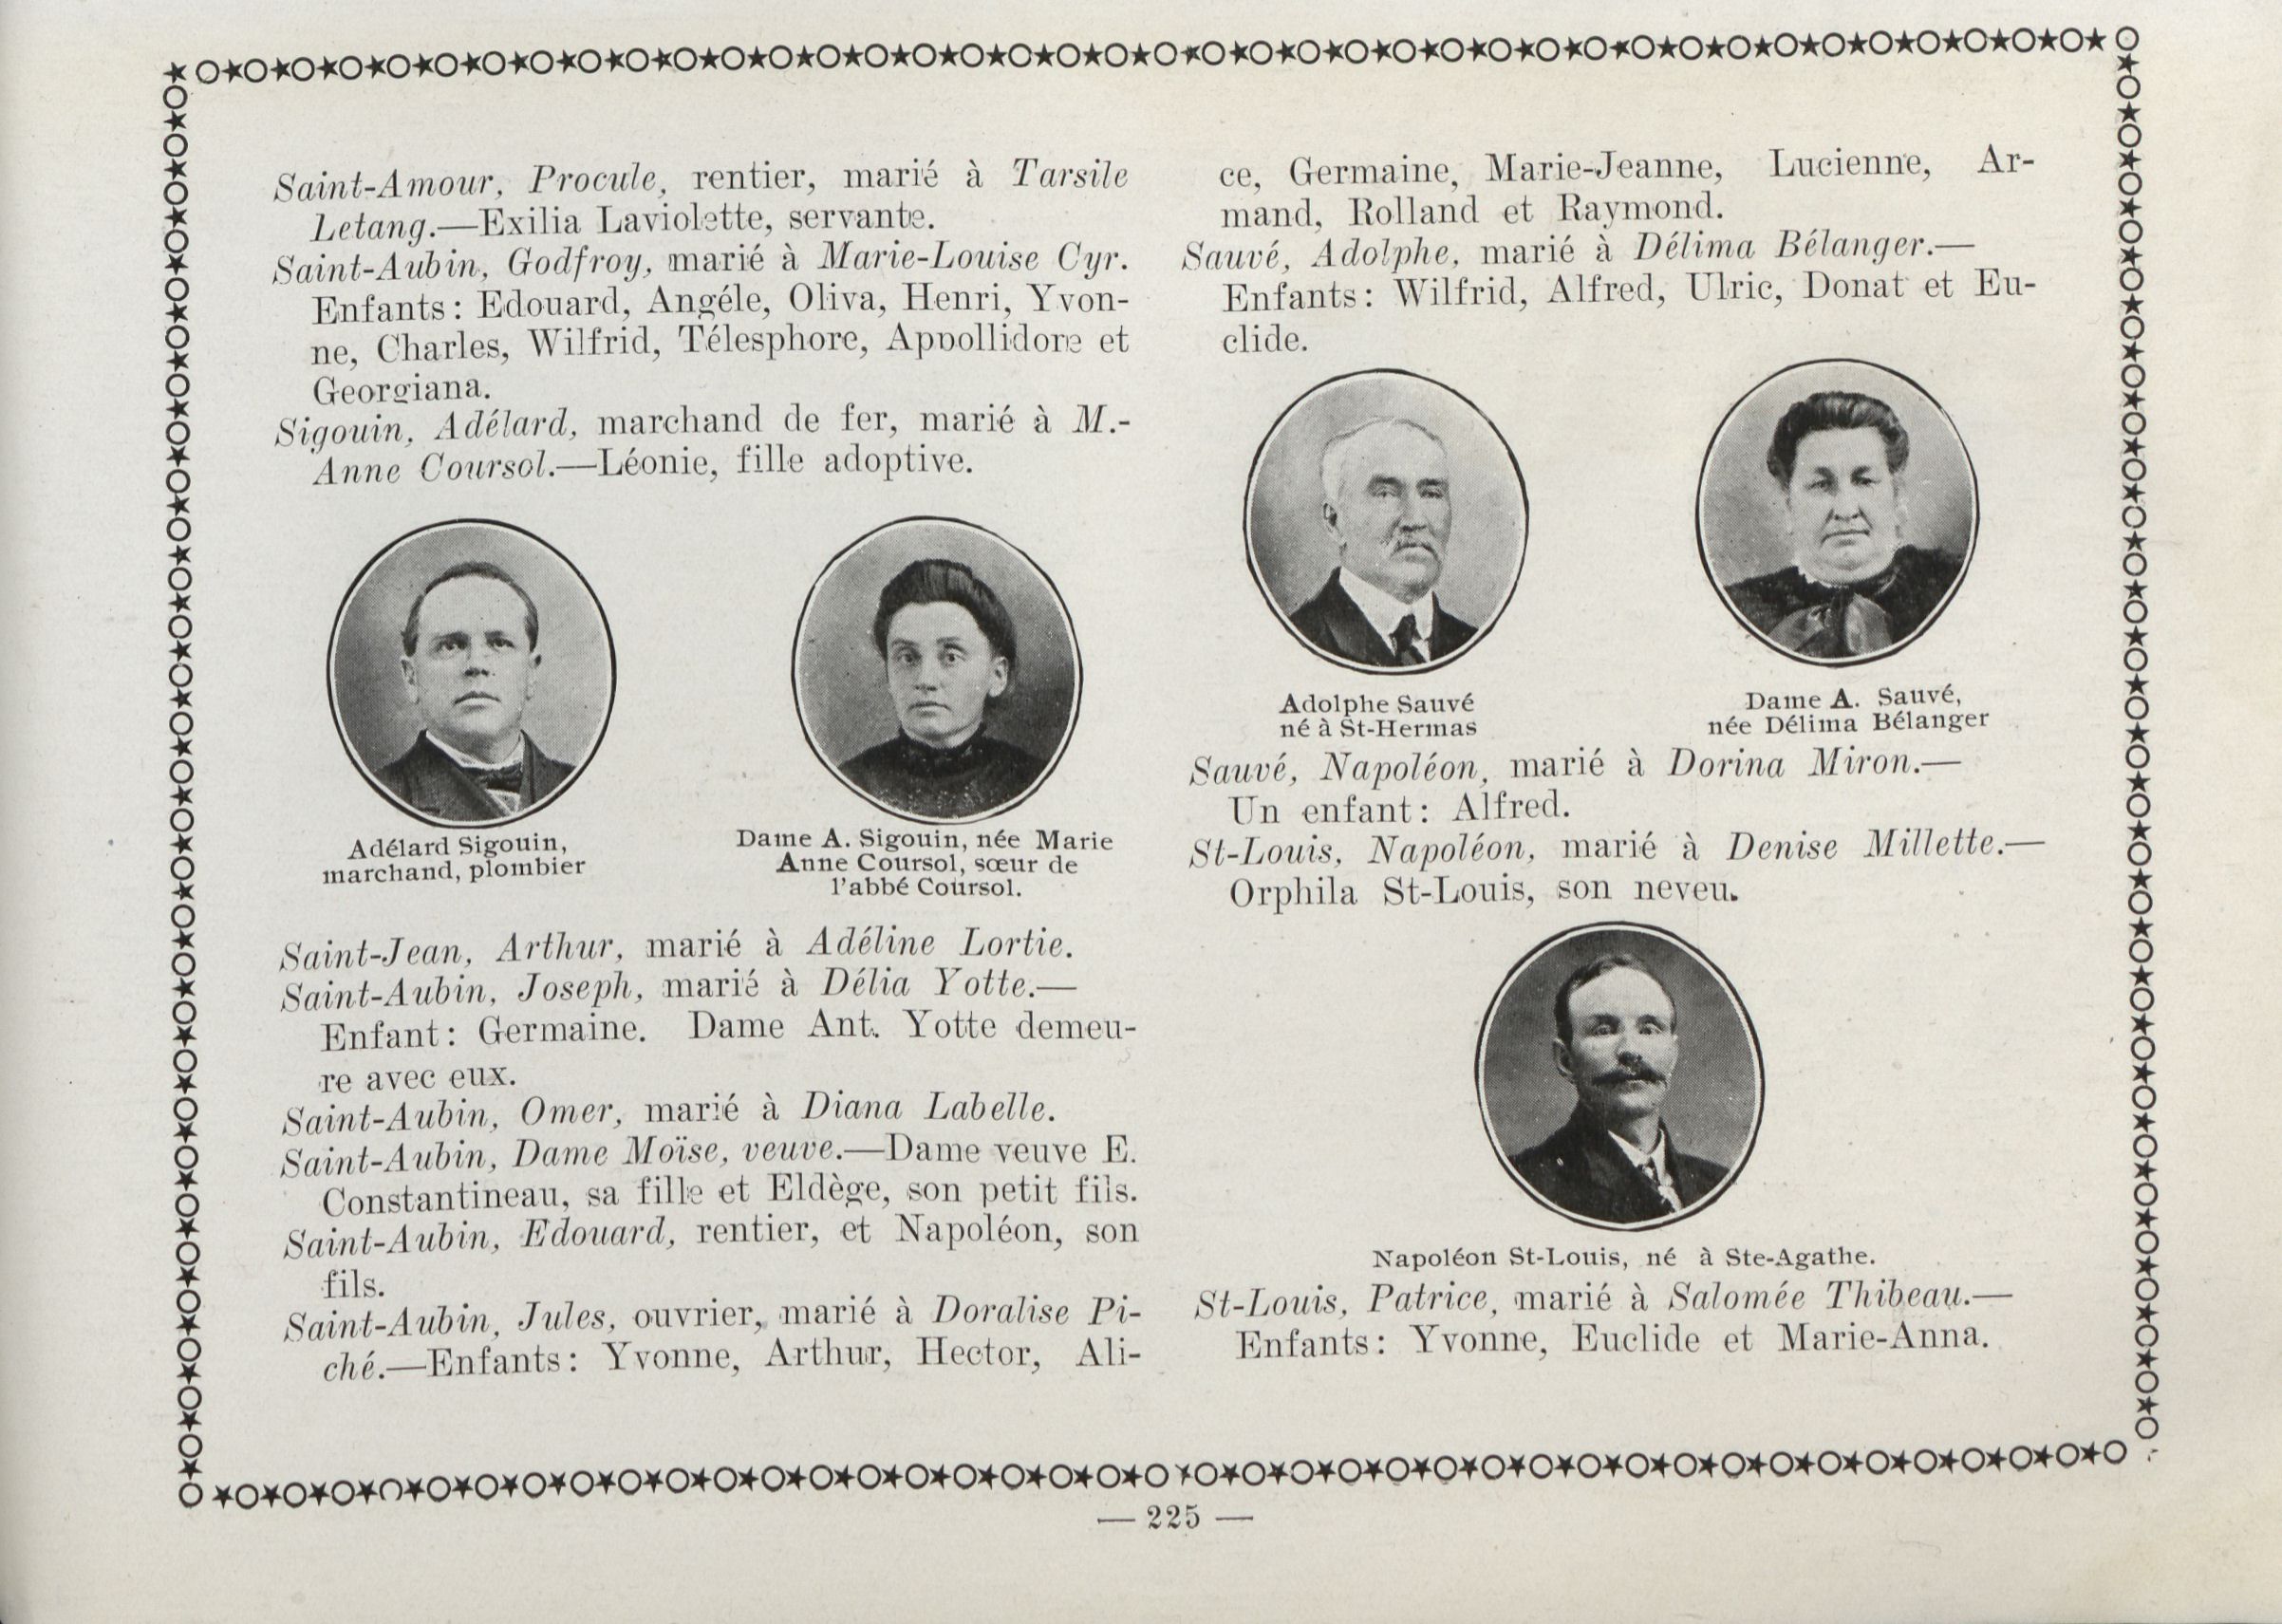 Saint-Amour, Procule, rentier, marié à Tarsile
Letang.—Exilia Laviolette, servante.
Saint-Aubin, Godfroy, marié à Marie-Louise Cyr.
Enfants: Edouard, Angéle, Oliva, Henri, Yvon-
ne, Charles, Wilfrid, Télesphore, Appollidore et
Georgiana.
Sigouin, Adélard, marchand de fer, marié à M.-
Anne Coursol.—Léonie, fille adoptive.
Adélard Sigouin,
marchand, plombier
Dame A. Sigouin, née Marie
Anne Coursol, sœur de
l'abbé Coursol.
Saint-Jean, Arthur, marié à Adéline Lortie.
Saint-Aubin, Joseph, marié à Délia Yotte.—
Enfant: Germaine. Dame Ant. Yotte demeu-
re avec eux.
Saint-Aubin, Omer, marié à Diana Labelle.
Saint-Aubin, Dame Moïse, veuve.—Dame veuve E.
Constantineau, sa fille et Eldège, son petit fils.
Saint-Aubin, Edouard, rentier, et Napoléon, son
fils.
Saint-Aubin, Jules, ouvrier, marié à Doralise Pi-
ché.—Enfants: Yvonne, Arthur, Hector, Ali-
ce, Germaine, Marie-Jeanne, Lucienne, Ar-
mand, Rolland et Raymond.
Sauvé, Adolphe, marié à Délima Bélanger.—
Enfants: Wilfrid, Alfred, Ulric, Donat et Eu-
clide.
Adolphe Sauvé
né à St-Hermas
Dame A. Sauvé,
née Délima Bélanger
Sauvé, Napoléon, marié à Dorina Miron.—
Un enfant: Alfred.
St-Louis, Napoléon, marié à Denise Millette.—
Orphila St-Louis, son neveu.
Napoléon St-Louis, né à Ste-Agathe.
St-Louis, Patrice, marié à Salomée Thibeau.—
Enfants: Yvonne, Euclide et Marie-Anna.
— 225 —